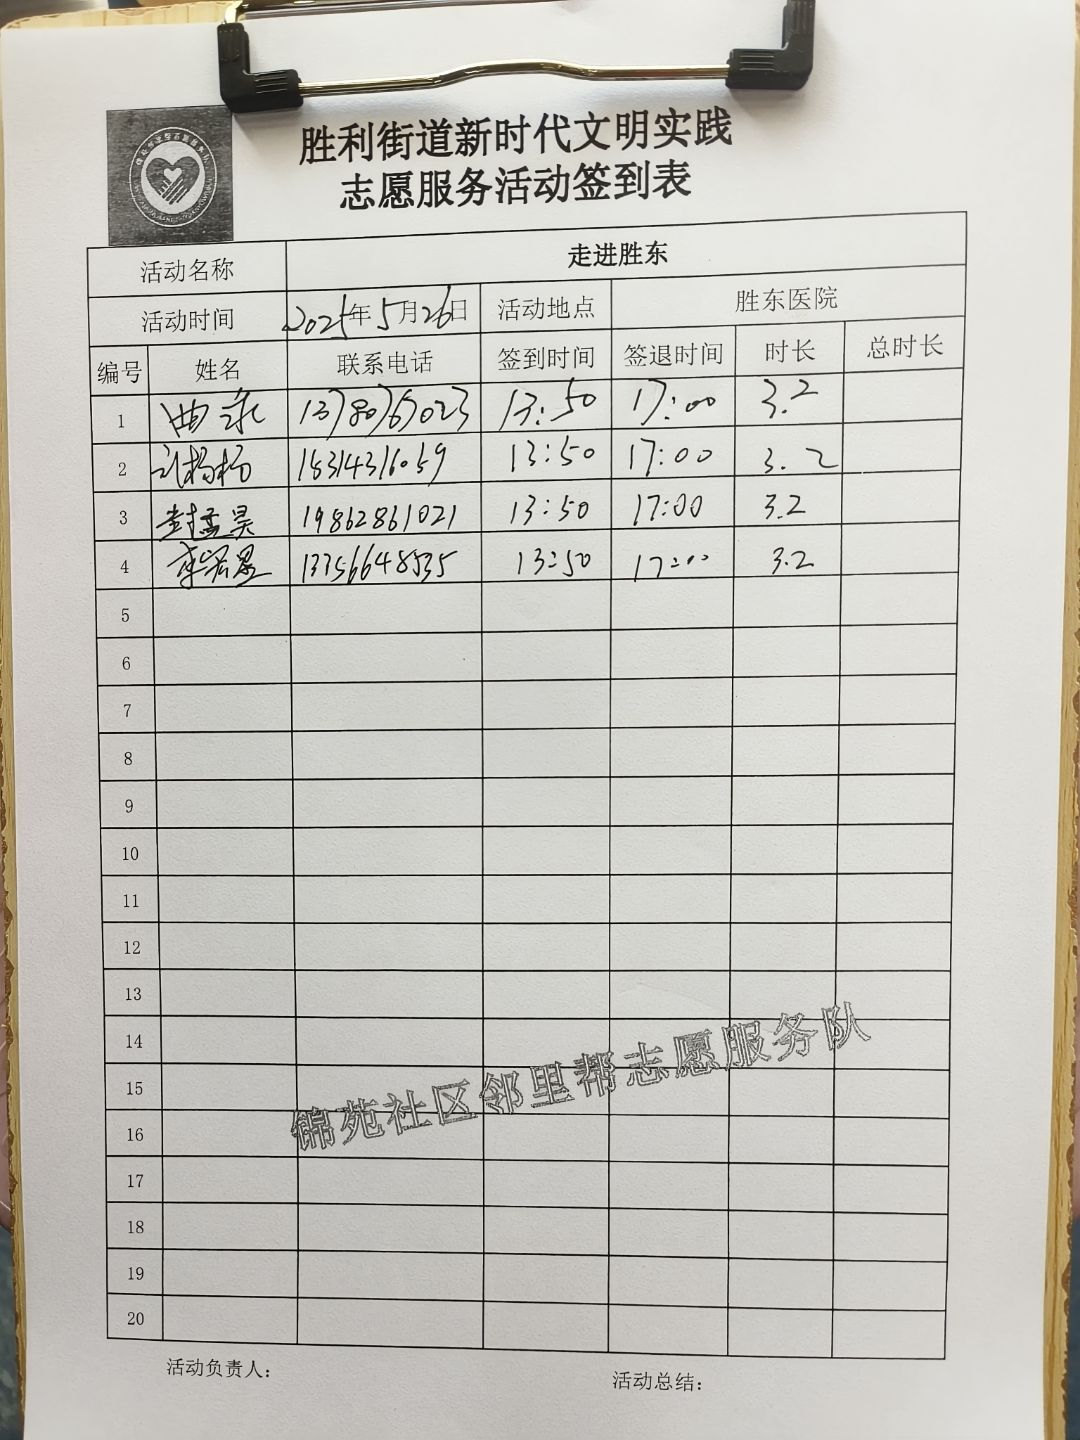 胜利街道新时代文明实践
志愿服务活动签到表
活动名称 走进胜东
活动时间 2025年5月26日 活动地点 胜东医院
编号 姓名 联系电话 签到时间 签退时间 时长 总时长
1 曲永 13780767023 13:50 17:00 3.2
2 杨杨 15314316059 13:50 17:00 3.2
3 封孟昊 19862861021 13:50 17:00 3.2
4 李宏恩 13356648535 13:50 17:00 3.2
5
6
7
8
9
10
11
12
13
14
15
16
17
18
19
20
锦苑社区邻里帮志愿服务队
活动负责人: 活动总结: